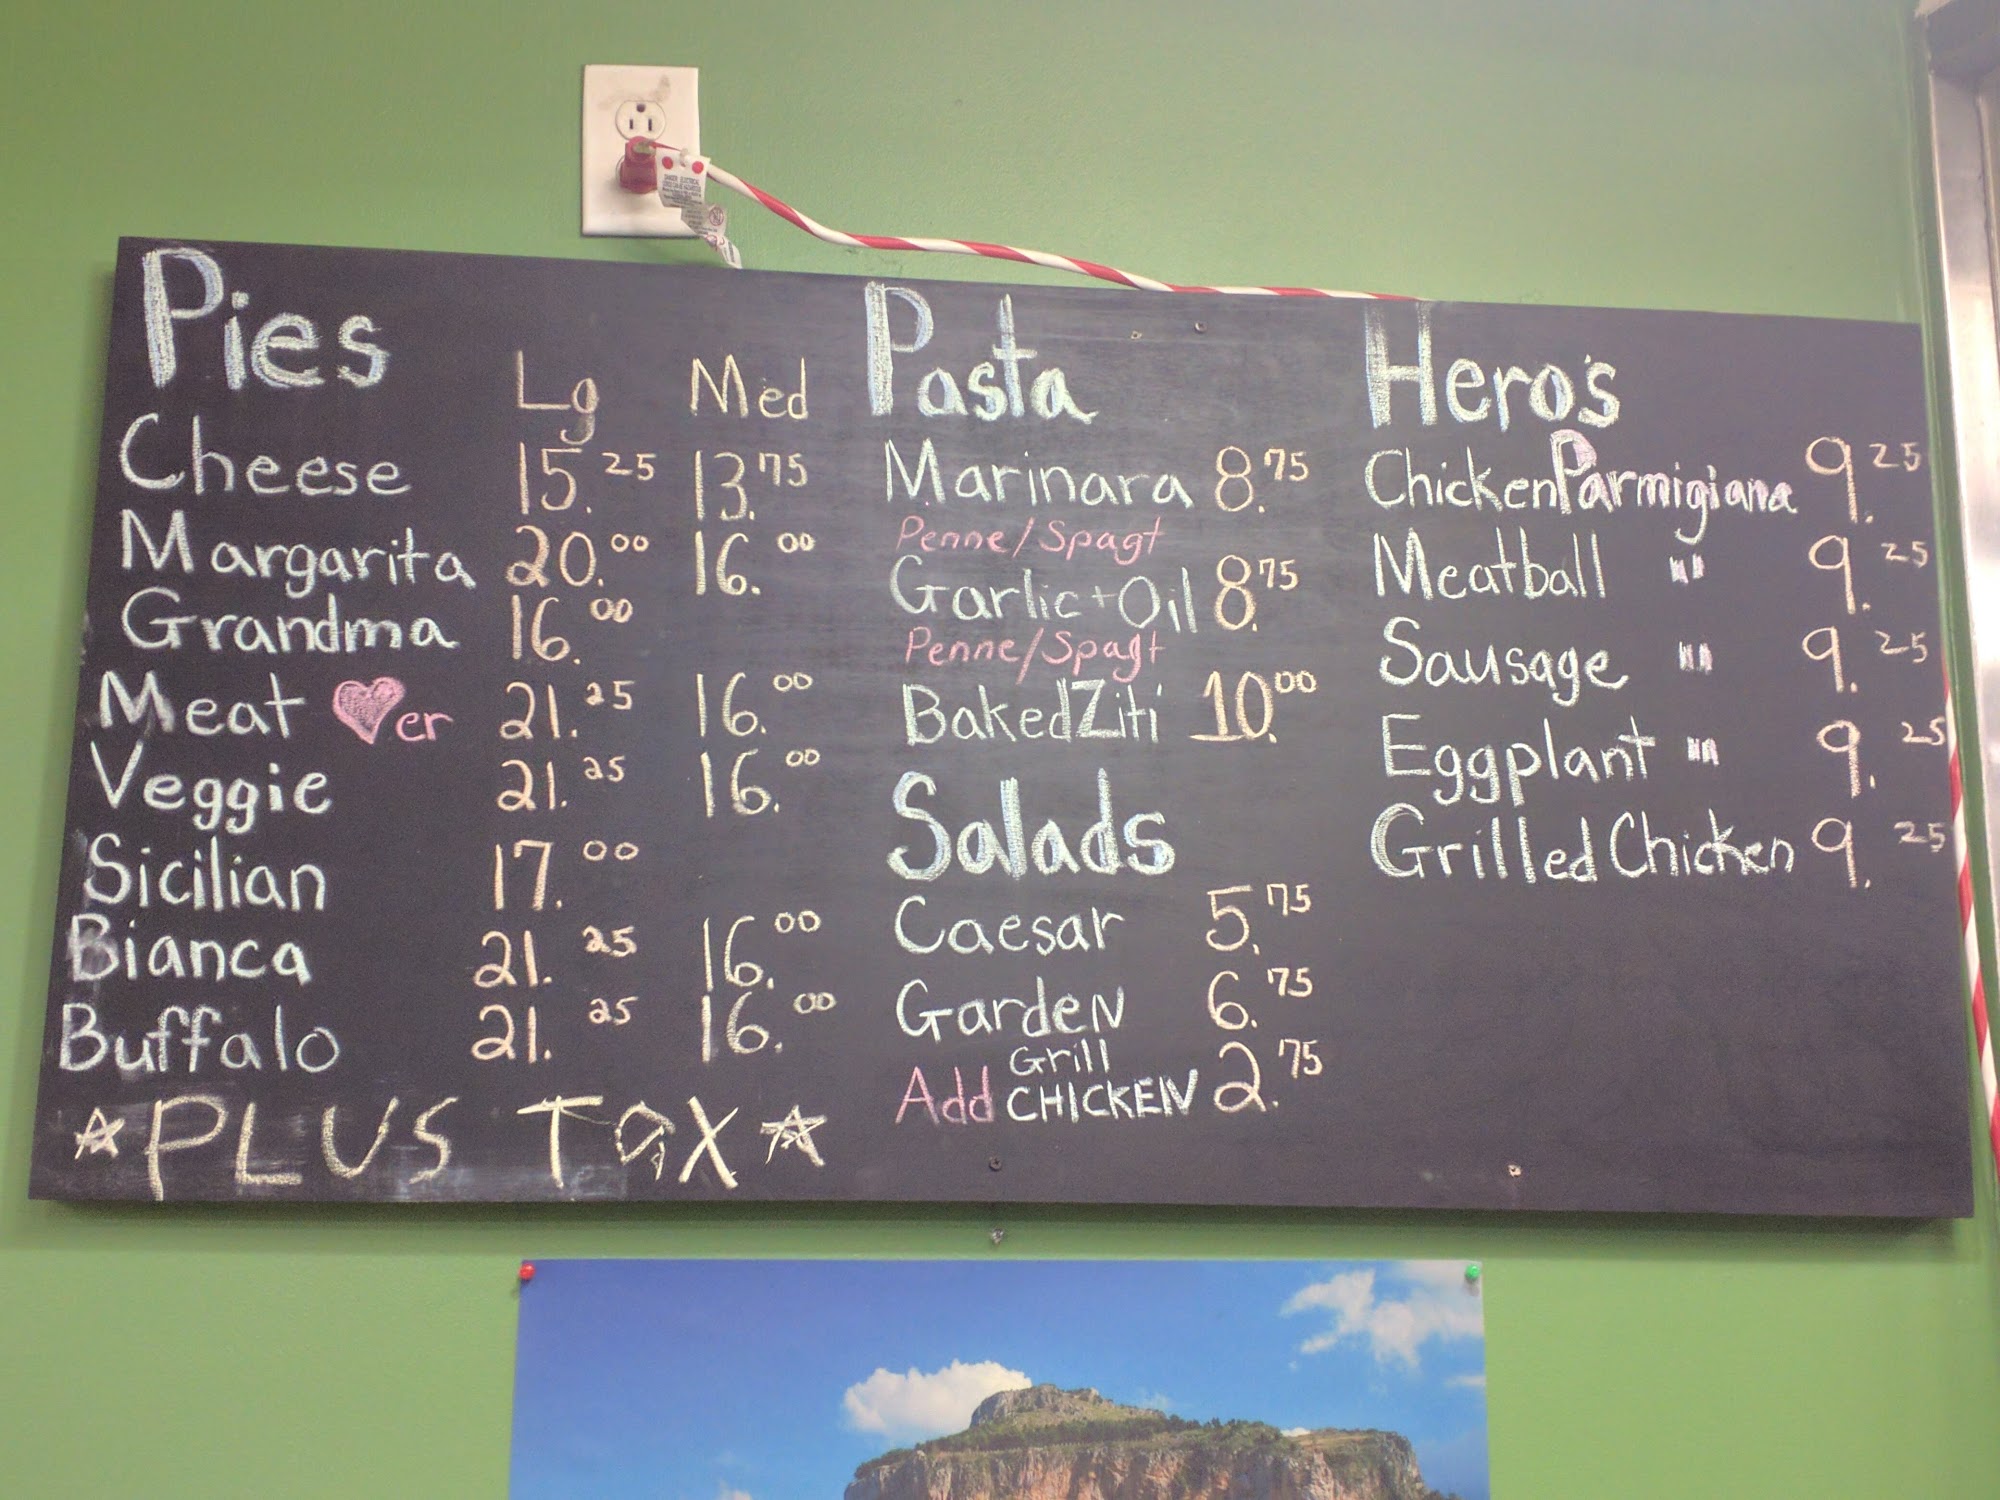 Pies
Lg Med
Cheese 15.25 13.75
Margarita 20.00 16.00
Grandma 16.00
Meat ♥er 21.25 16.00
Veggie 21.25 16.00
Sicilian 17.00
Bianca 21.25 16.00
Buffalo 21.25 16.00
☆PLUS TAX☆
Pasta
Marinara 8.75
Penne/Spagt
Garlic+Oil 8.75
Penne/Spagt
Baked Ziti 10.00
Salads
Caesar 5.75
Garden 6.75
Add Grill CHICKEN 2.75
Hero's
Chicken Parmigiana 9.25
Meatball " 9.25
Sausage " 9.25
Eggplant " 9.25
Grilled Chicken 9.25